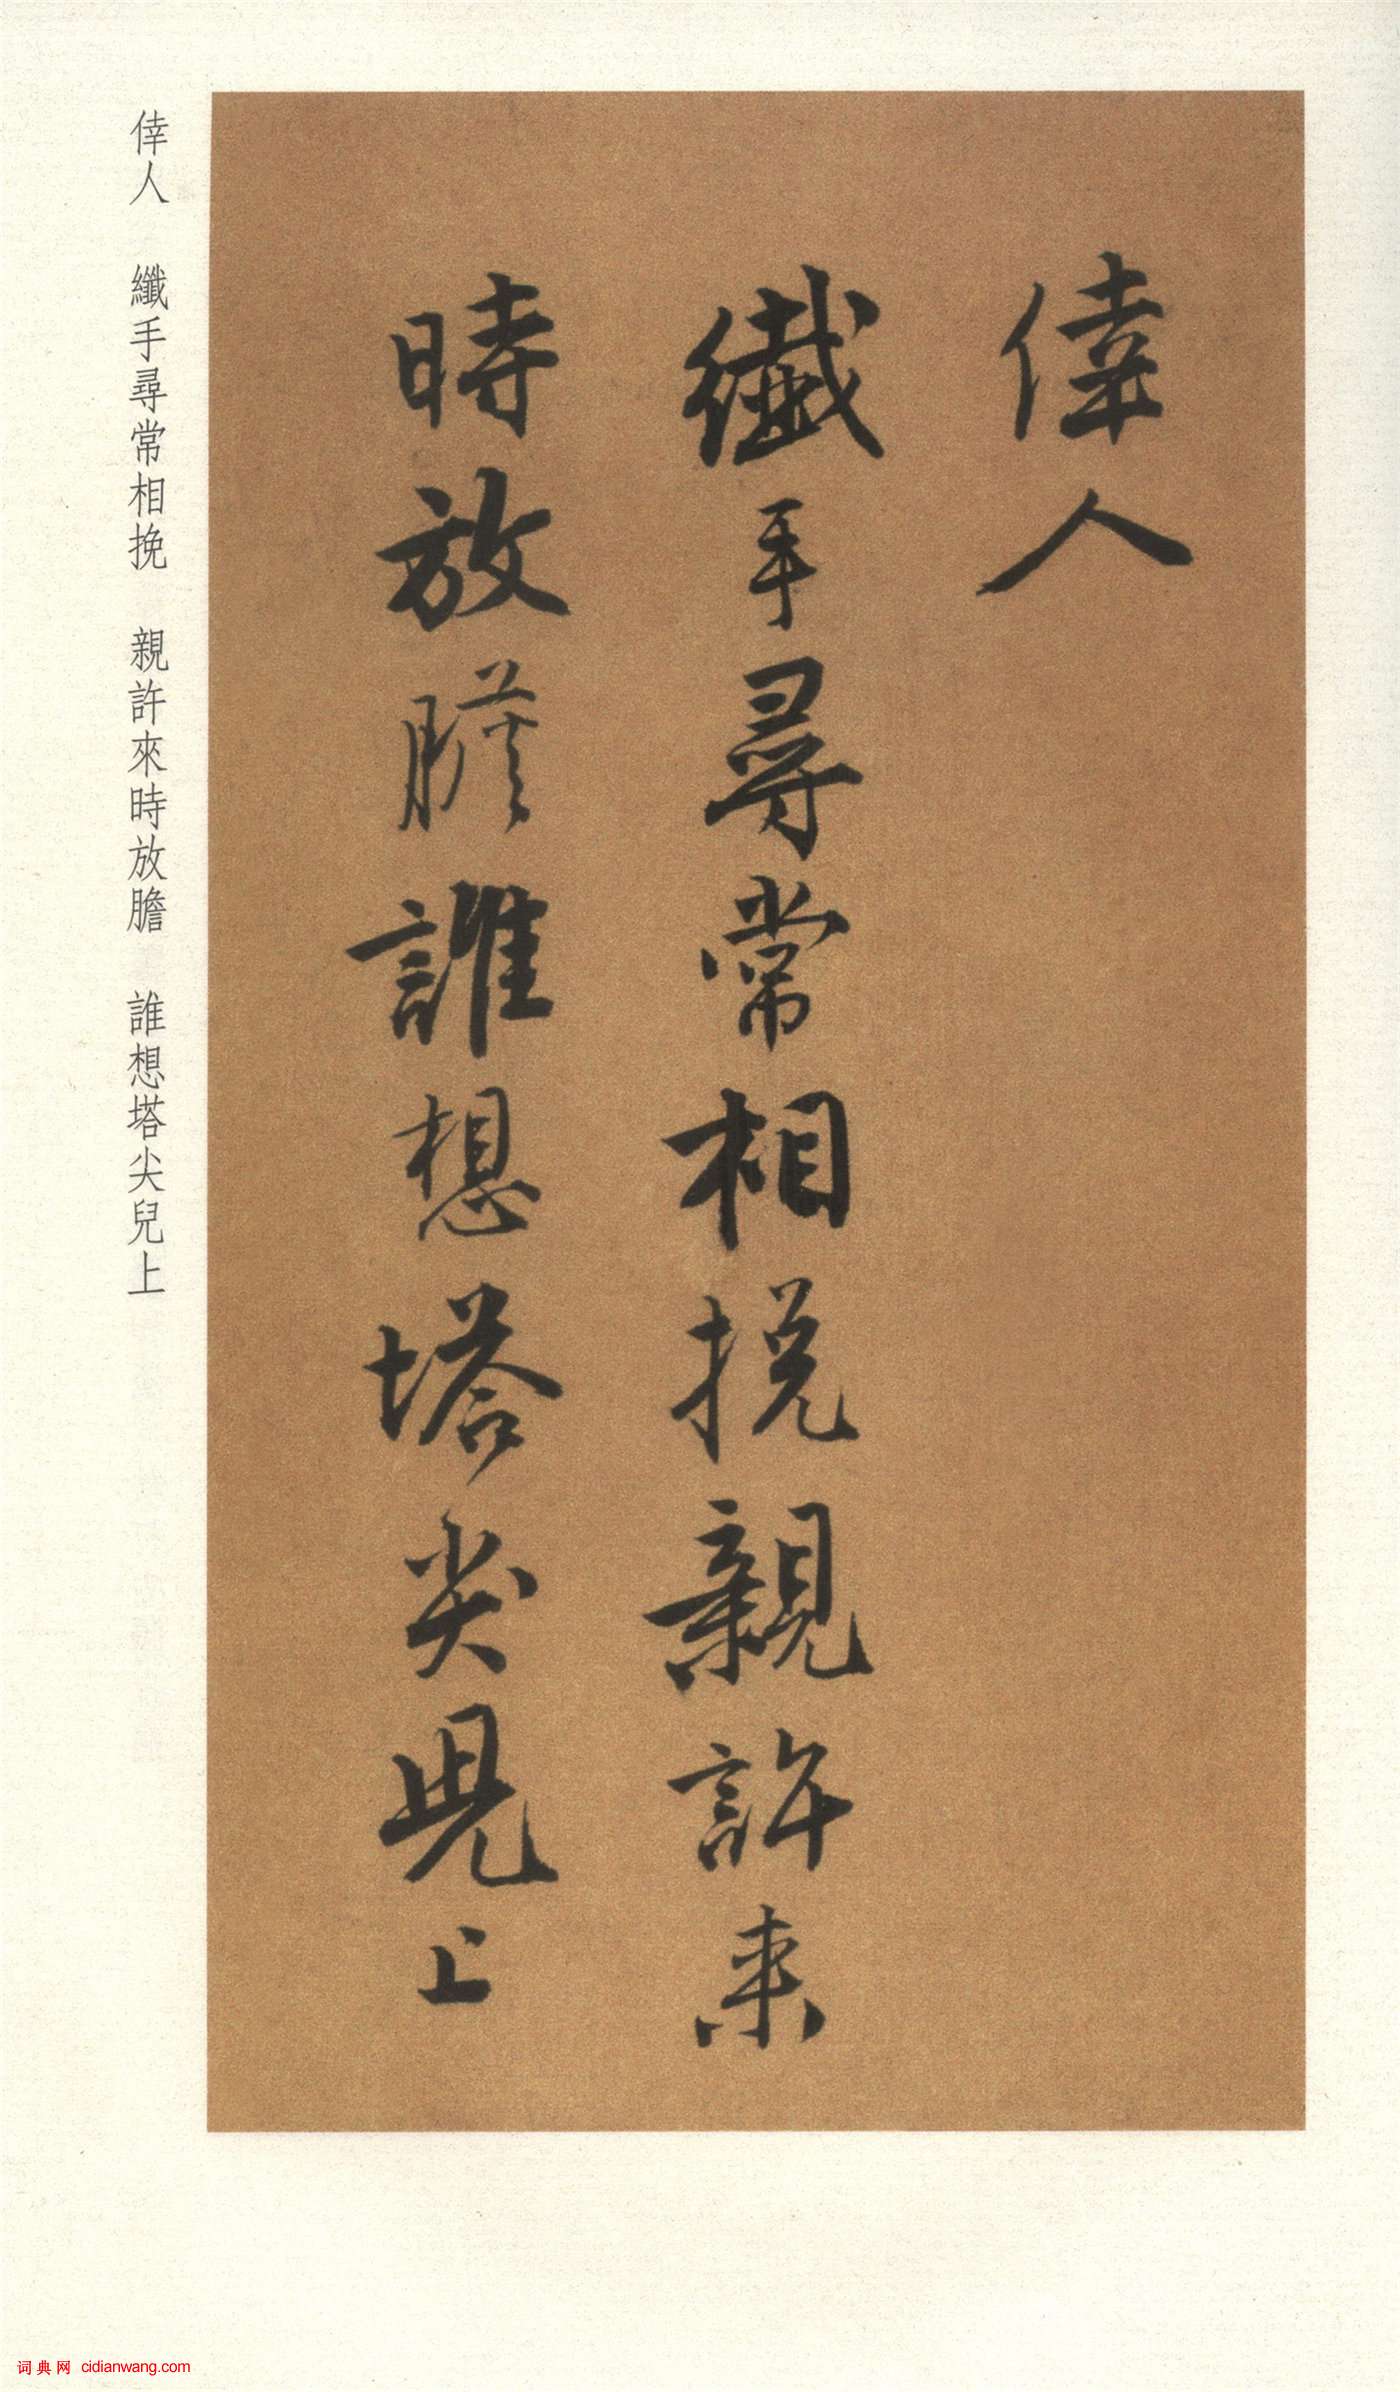 倖人
纖手尋常相挽親許来
時放膽誰想塔尖兒上
倖人 纖手尋常相挽 親許來時放膽 誰想塔尖兒上
词典网 cidianwang.com